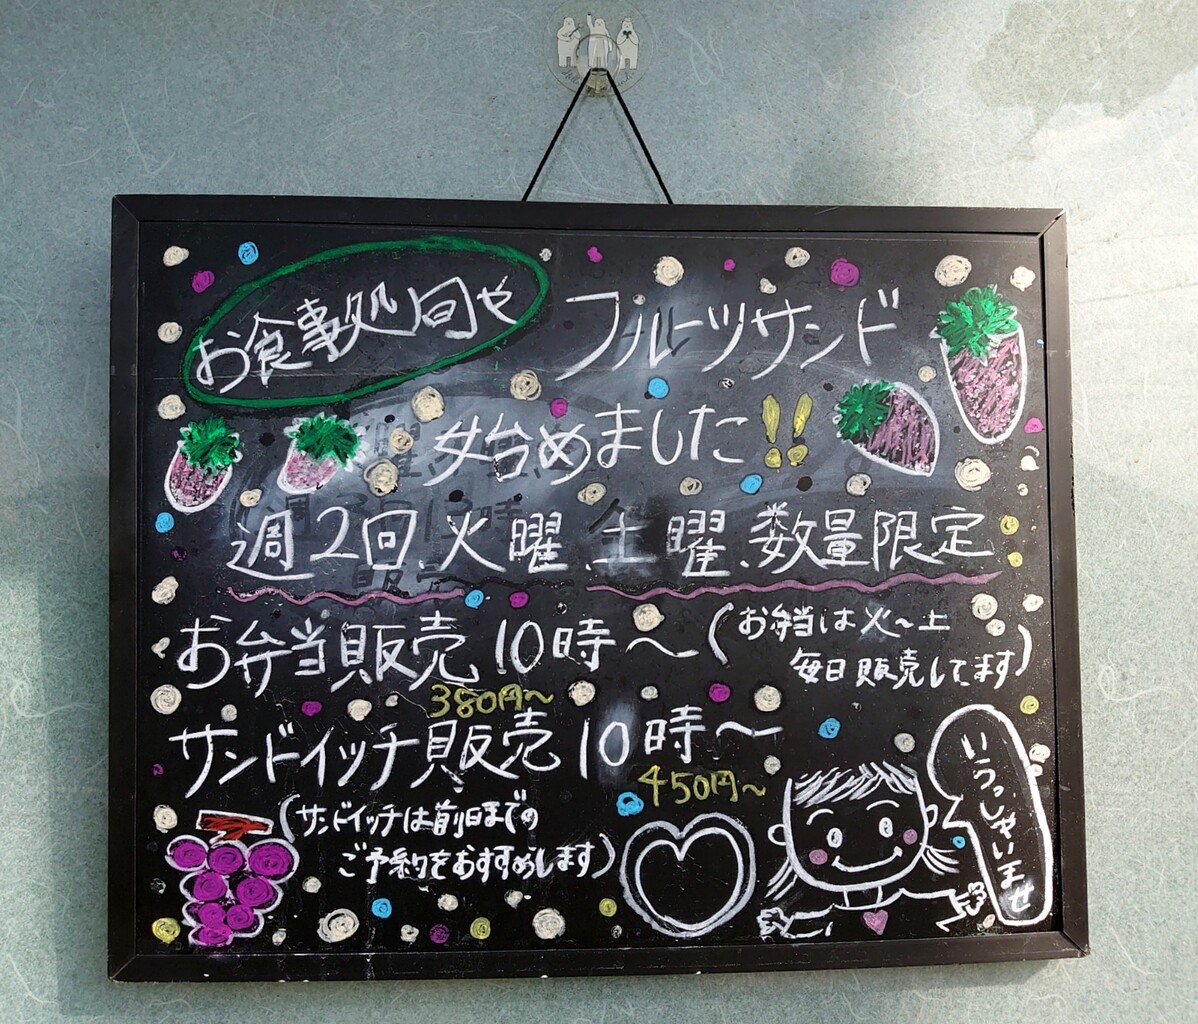 お食事処 旬や
フルーツサンド
始めました!!
週2回.火曜.土曜.数量限定
お弁当販売10時〜(お弁当は火〜土
毎日販売してます)
380円〜
サンドイッチ販売10時〜
450円〜
(サンドイッチは前日までの
ご予約をおすすめします)
いらっしゃいませ